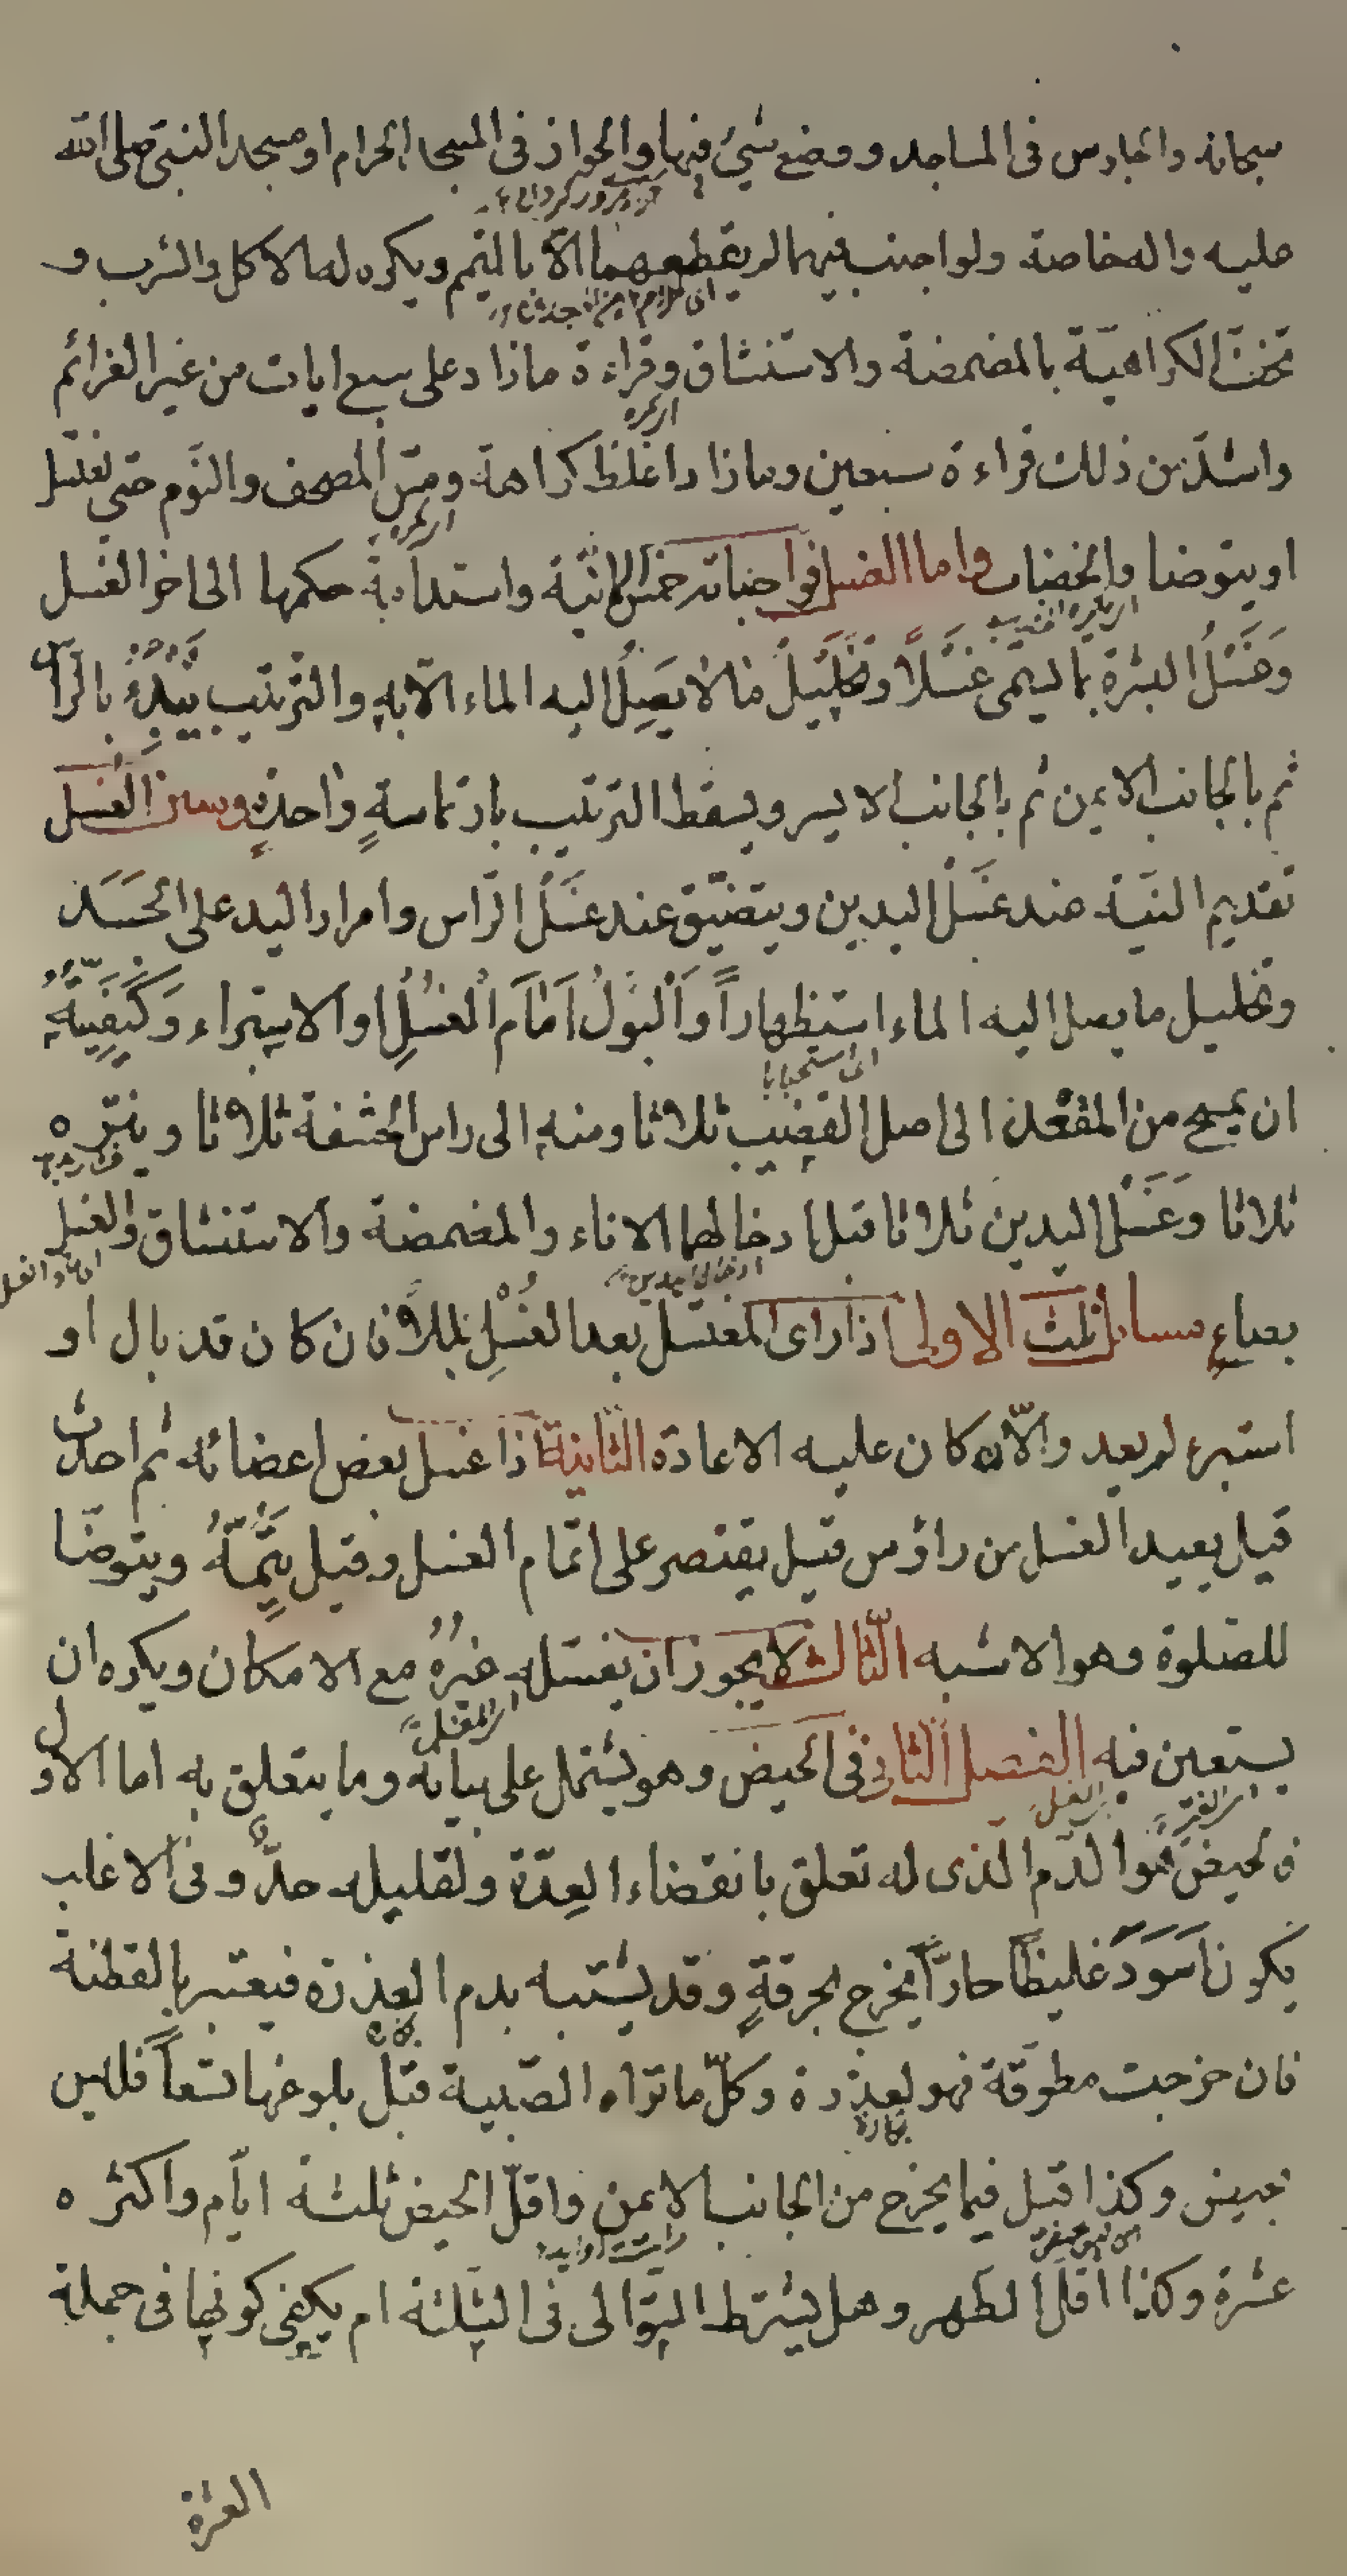 سبحانه والجلوس فى المساجد ووضع شىء فيها والجواز فى المسجد الحرام او مسجد النبىّ صلى الله
عليه واله خاصة ولو اجنب فيهما لم يقطعهما الّا بالتيمم ويكره له الاكل والشرب و
تخفّ الكراهيّة بالمضمضة والاستنشاق وقراءة مازاد على سبع ايات من غير العزائم
واشدّ من ذلك قراءة سبعين ومازاد اغلظ كراهة ومسّ المصحف والنّوم حتى يغتسل
او يتوضا والخضاب واما الغسل فواجباته خمس النيّة واستدامة حكمها الى اخر الغسل
وَغَسْلُ البشرة بما يسمى غَسْلًا وتخليلُ مالا يَصِلُ اليه الماء الّا به والترتيب يَبْدَءُ بالرّاس
ثم بالجانب الايمن ثم بالجانب الايسر ويسقط الترتيب بارتماسةٍ واحدةٍ وسنن الغُسل
تقديم النيّة عند غَسْل اليدين ويتضيّق عند غَسْل الرّاس وامرار اليد على الجَسَد
وتخليل ما يصل اليه الماء استظهاراً وَالْبَولُ اَمَامَ الْغُسْلِ او الاستبراء وَكَيفِيَّتُهُ
اى استحبابا
ان يمسح من المقعدة الى اصل القضيب ثلاثا ومنه الى راس الحشفة ثلاثا وينتره
ثلاثا وَغَسْل اليدين ثلاثا قبل ادخالهما الاناء والمضمضة والاستنشاق والغسل
بصاعٍ مسائل ثلث الاولى اذا راى المغتسل بعد الغُسْلِ بللاً فان كان قد بال او
استبرء لم يعد والّا كان عليه الاعادة الثانية اذا غسل بعض اعضائه ثم احدث
قيل يعيد الغسل من راس وقيل يقتصر على اتمام الغسل وقيل يُتِمُّهُ ويتوضّا
للصّلوة وهو الاشبه الثّالثة لا يجوز ان يغسله غيرُهُ مع الامكان ويكره ان
يستعين فيه الفصل الثانى فى الحيض وهو يشتمل على بيانه وما يتعلق به اما الاول
فالحيض هُوا لدّم الّذى له تعلق بانقضاء العِدّة ولقليله حدٌّ وفى الاغلب
يكون اَسوَدَ غليظًا حارّاً يخرج بحرقةٍ وقد يشتبه بدم العِذرة فيعتبر بالقطنة
فان خرجت مطوّقة فهو لعذرة وكلّ ما تراه الصّبية قبل بلوغها تسعاً فليس
بكارة
بحيض وكذا قيل فيما يخرج من الجانب الايمن واقلّ الحيض ثلثة ايّام واكثره
عشرة وكذا اقلّ الطهر وهل يشترط التوالى فى الثلثة ام يكفى كونها فى جملة
العشرة